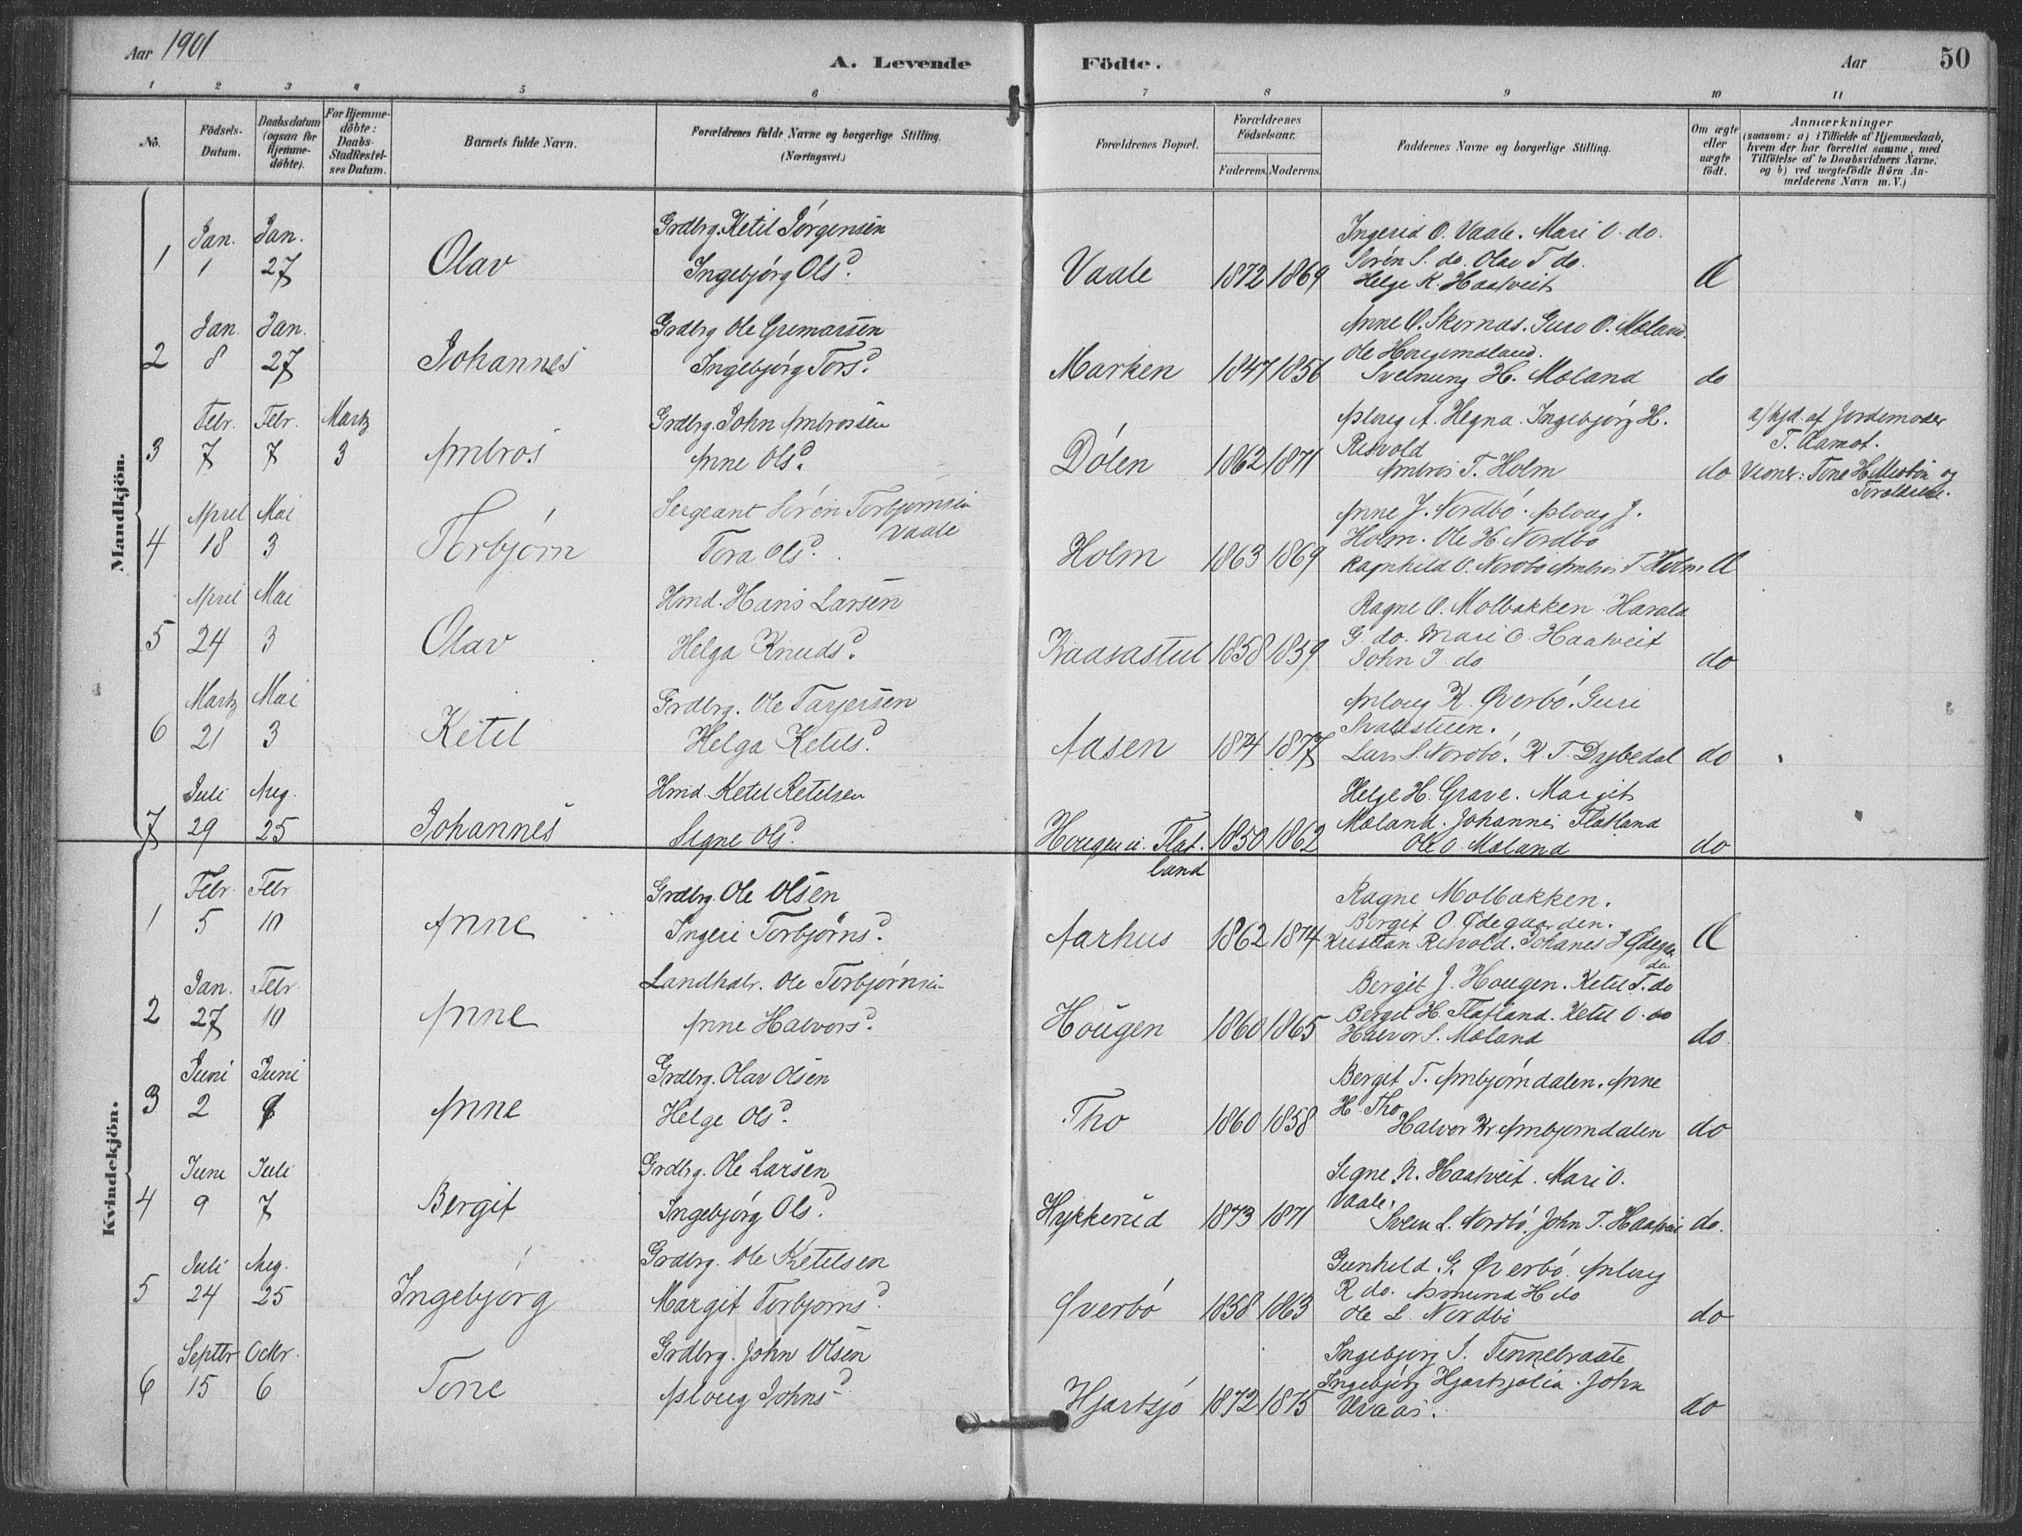 Aar 1901
A. Levende Födte.
Aar
50
1 2 3 4 5 6 7 8 9 10 11
No.
Födsels-Datum.
Daabsdatum (ogsaa for Hjemme-döbte).
For Hjemme-döbte: Daabs-Stadfæstel-ses Datum.
Barnets fulde Navn.
Forældrenes fulde Navne og borgerlige Stilling. (Næringsvei.)
Forældrenes Bopæl.
Forældrenes Födselsaar.
Faderens. Moderens.
Faddernes Navne og borgerlige Stilling.
Om ægte eller uægte födt.
Anmærkninger
(saasom: a) i Tilfælde af Hjemmedaab, hvem der har forrettet samme, med Tilföielse af to Daabsvidners Navne. og b) ved uægtefödte Börn An-melderens Navn m. V.)
Mandkjön.
1 Jan. 1 Jan. 27 Olav Grdbrg. Ketil Jørgensen
Ingebjørg Olsd. Vaale 1872 1869
Ingerid O. Vaale. Mari O. do.
Sørén S. do. Olav T. do.
Helge K. Haatveit Æ
2 Jan. 8 Jan. 27 Johannes Grdbrg Ole Gremarsen
Ingebjørg Torsd. Marken 1847 1856
Anne O. Skornas. Guro O. Moland.
Ole Hougemoland.
Svelnung H. Moland do
3 Febr. 7 Febr. 7 Martz 3 Ambros Grdbrg. John Ambrossen
Anne Olsd. Dølen 1862 1871
Asloug A. Hegna. Ingebjørg H.
Risvold
Ambros T. Holm do
a) hjd. af Jordemoder
T. Aamot.
Vidner: Tone H. og
4 April 18 Mai 3 Torbjørn Sergeant Sörén Torbjørnsen
Vaale
Tora Olsd. Holm 1863 1869
Anne J. Nordbö. Asloug J.
Holm. Ole H. Nordbo
Ragnhild O. Nordbo Ambros T. Holm Æ
5 April 24 Mai 3 Olav Hmd. Hans Larsen
Helga Knudsd. Kaasastul 1858 1859
Ragne O. Molbakken. Harald
G. do. Mari O. Haatveit
John J. do do
6 Martz 21 Mai 3 Ketil Grdbrg. Ole Tarjeisen
Helga Ketilsd. Aasen 1874 1877
Asloug K. Øverbö. Guri
Svalestuen.
Lars S. Nordbö. K. T. Dybedal do
7 Juli 29 Aug. 25 Johannes Hmd. Ketil Ketilsen
Signe Olsd. Hougen u. Flat-
land 1850 1862
Helge H. Grave. Margit
Moland. Johannes Flatland
Ole O. Moland do
Kvindekjön.
1 Febr. 5 Febr 10 Anne Grdbrg. Ole Olsen
Ingeri Torbjørnsd. Aarhus 1862 1874
Ragne Molbakken.
Bergit O. Ødegaarden.
Kristian Risvold. Johanes J Ødegaar
den Æ
2 Jan. 27 Febr 10 Anne Landhdlr. Ole Torbjørnsen
Anne Halvorsd. Hougen 1860 1865
Bergit J. Hougen. Ketil T. do
Bergit H. Flatland. Ketil O. do
Halvor S. Moland do
3 Juni 2 Juni 9 Anne Grdbrg. Olav Olsen
Helge Olsd. Tho 1860 1858
Bergit T. Ambjørndalen. Anne
H. Tho
Halvor Kr. Ambjørndalen do
4 Juni 9 Juli 7 Bergit Grdbrg. Ole Larsen
Ingebjørg Olsd. Hykkerud 1873 1871
Signe N. Haatveit. Mari O.
Vaale.
Svein L. Nordbö. John T. Haatveit do.
5 Juli 24 Aug. 25 Ingebjørg Grdbrg. Ole Ketilsen
Margit Torbjørnsd. Øverbö 1858 1863
Gunhild G. Øverbö. Asloug
K do. Asmund H do
Ole L. Nordbö do
6 Septbr 15 Octbr. 6 Tone Grdbrg. John Olsen
Asloug Johnsd. Hjartsjö 1872 1875
Ingebjørg S. Tinnebraate
Ingebjørg Hjartsjölia. John
Vraas. do